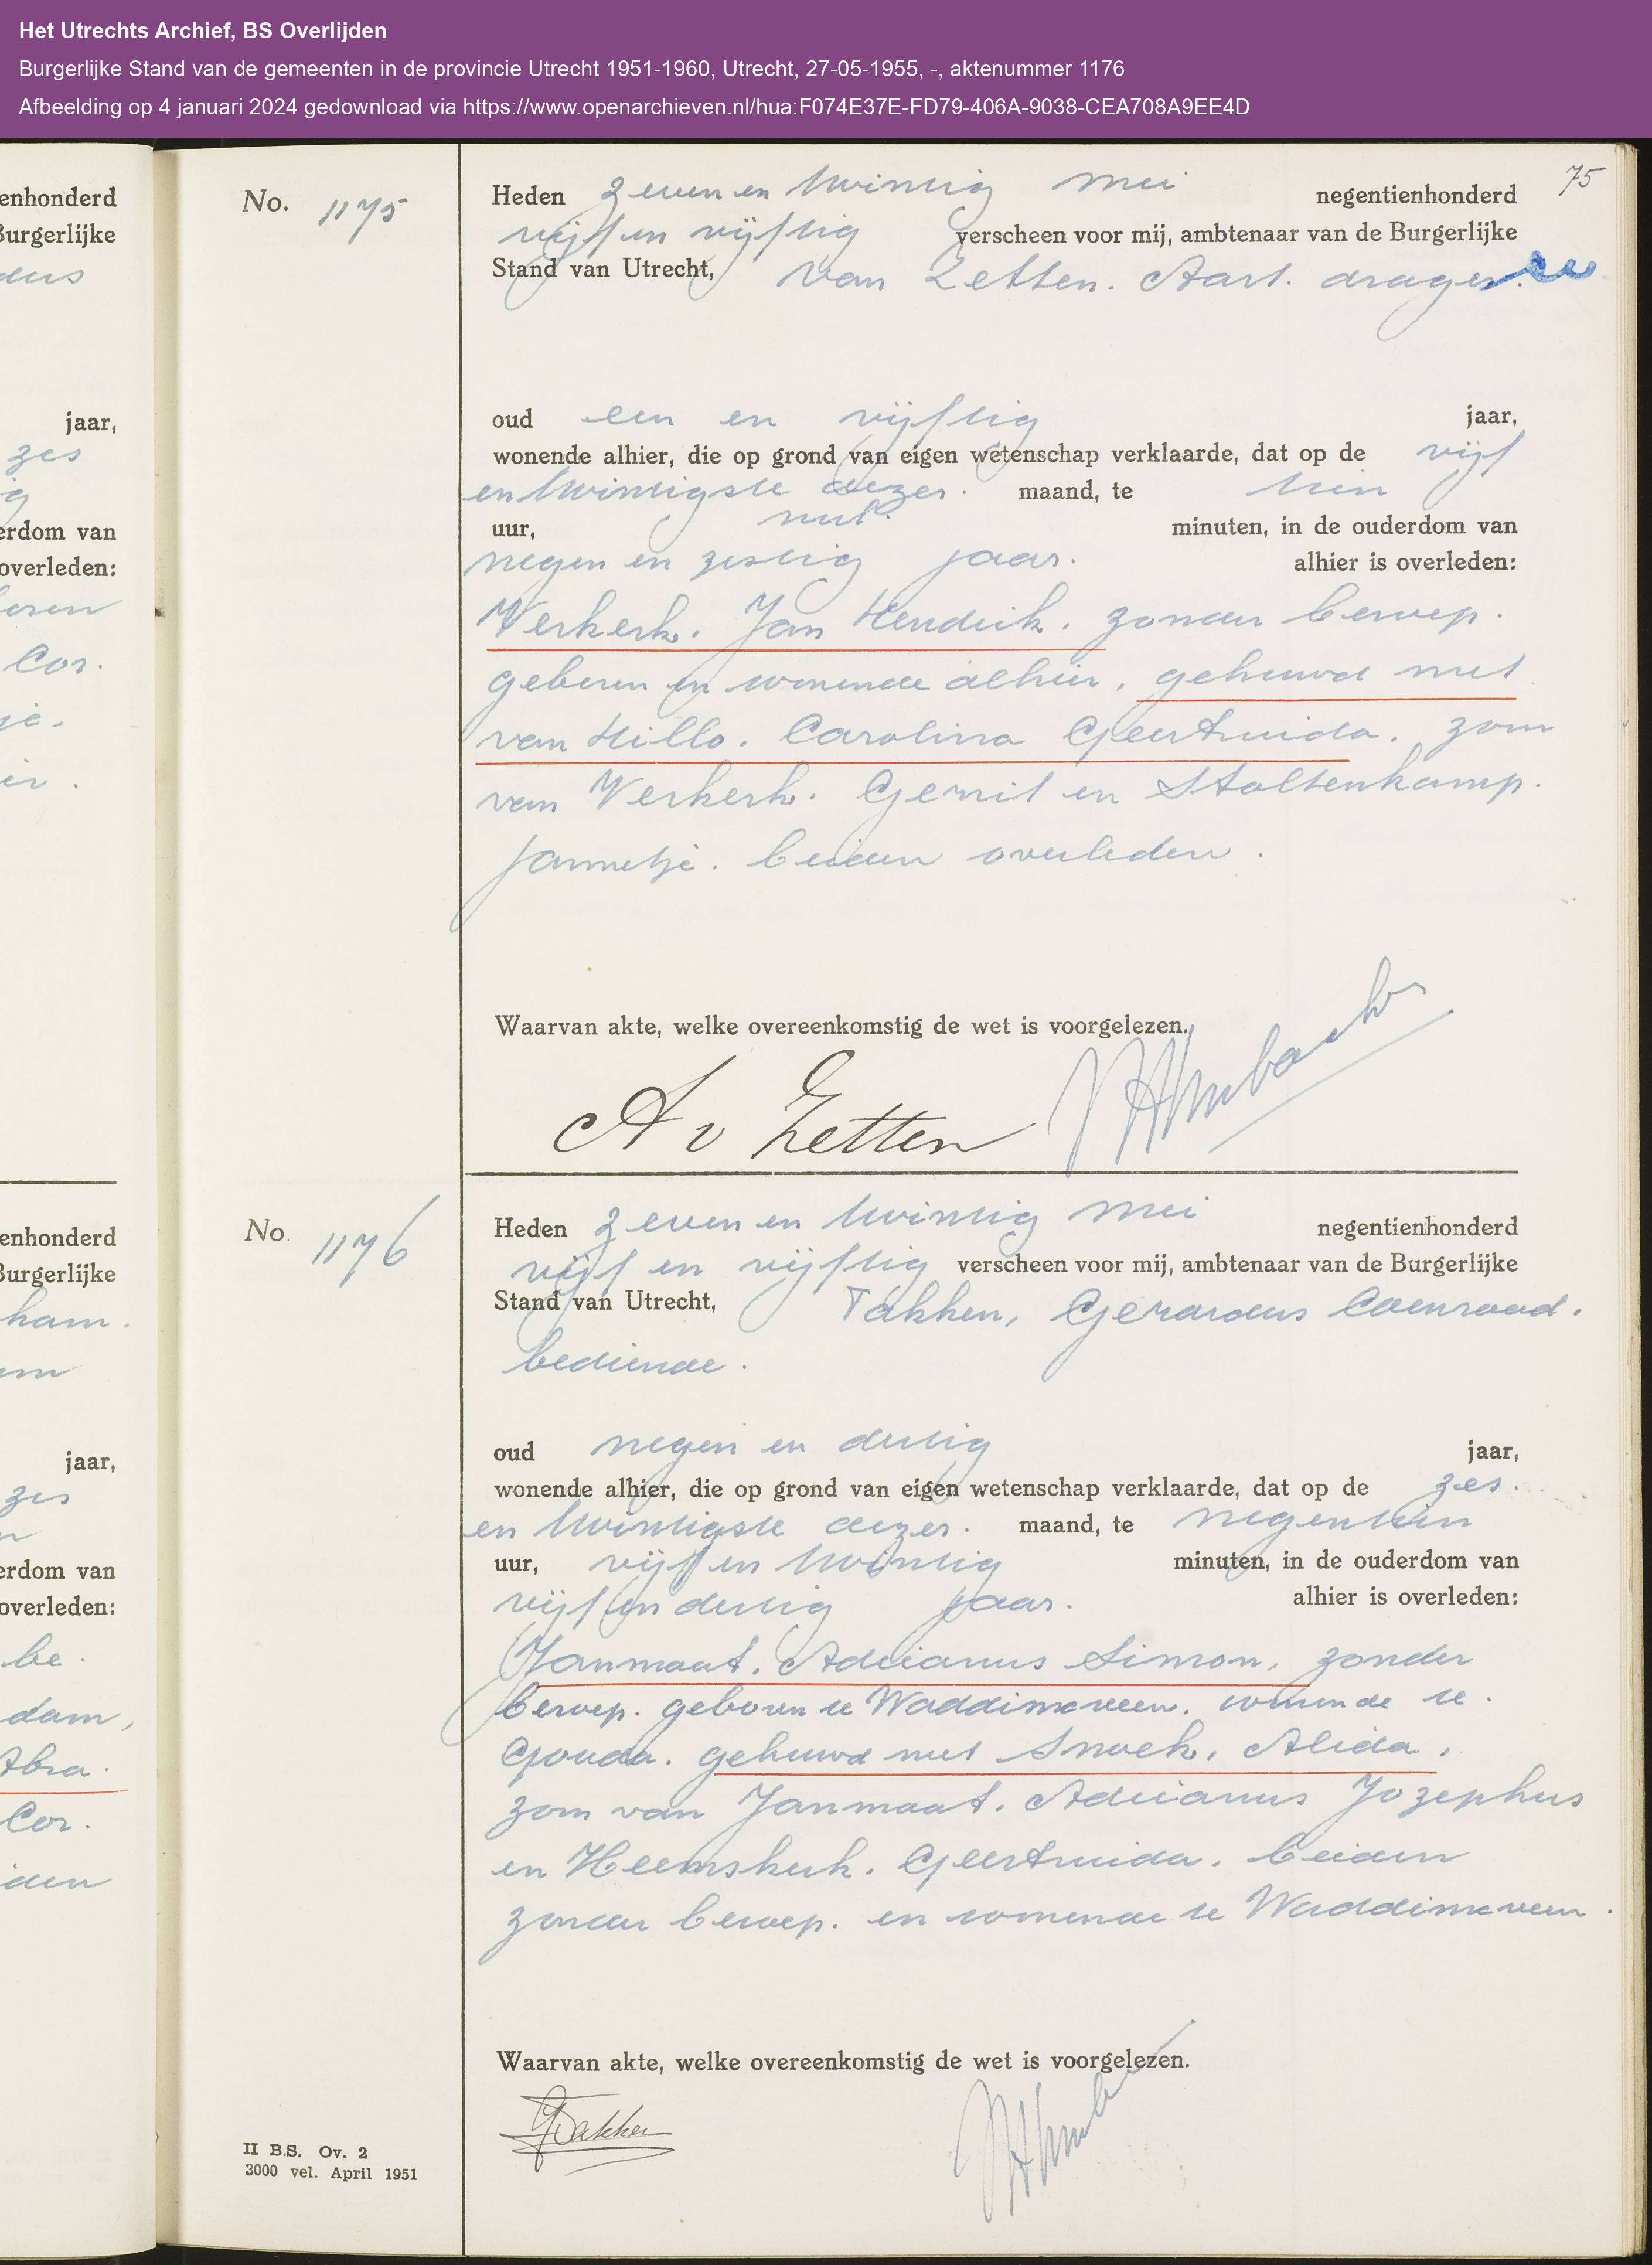 Het Utrechts Archief, BS Overlijden
Burgerlijke Stand van de gemeenten in de provincie Utrecht 1951-1960, Utrecht, 27-05-1955, -, aktenummer 1176
Afbeelding op 4 januari 2024 gedownload via https://www.openarchieven.nl/hua:F074E37E-FD79-406A-9038-CEA708A9EE4D
enhonderd
Burgerlijke
dus
jaar,
zes
ig
erdom van
overleden:
Cor.
enhonderd
Burgerlijke
ham.
jaar,
zes
erdom van
overleden:
be.
dam,
Abra.
Cor.
iden
75
No. 1175
Heden zeven en twintig mei negentienhonderd
vijf en vijftig verscheen voor mij, ambtenaar van de Burgerlijke
Stand van Utrecht, van Zetten. Aart. drager.
oud een en vijftig jaar,
wonende alhier, die op grond van eigen wetenschap verklaarde, dat op de vijf
en twintigste dezer. maand, te tien
uur, nul. minuten, in de ouderdom van
negen en zestig jaar. alhier is overleden:
Verkerk. Jan Hendrik. zonder beroep.
geboren en wonende alhier, gehuwd met
van Hillo. Carolina Geertruida. zoon
van Verkerk. Gerrit en Stoltenkamp.
Jannetje. beiden overleden.
Waarvan akte, welke overeenkomstig de wet is voorgelezen.
A v Zetten
No. 1176
Heden zeven en twintig mei negentienhonderd
vijf en vijftig verscheen voor mij, ambtenaar van de Burgerlijke
Stand van Utrecht, Takken, Gerardus Coenraad.
bediende.
oud negen en dertig jaar,
wonende alhier, die op grond van eigen wetenschap verklaarde, dat op de zes.
en twintigste dezer. maand, te negentien
uur, vijf en twintig minuten, in de ouderdom van
vijf en dertig jaar. alhier is overleden:
Janmaat. Adrianus Simon, zonder
beroep. geboren te Waddinxveen. wonende te.
Gouda. gehuwd met Snoek, Alida,
zoon van Janmaat. Adrianus Jozephus
en Heemskerk. Geertruida. beiden
zonder beroep. en wonende te Waddinxveen.
Waarvan akte, welke overeenkomstig de wet is voorgelezen.
Takken
II B.S. Ov. 2
3000 vel. April 1951